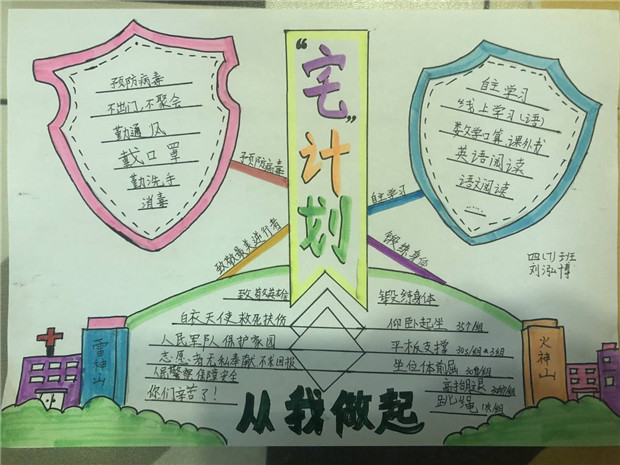 “宅”计划
预防病毒
不出门,不聚会
勤通风
戴口罩
勤洗手
消毒
自主学习
线上学习(语)
数文学口算 课外书
英语阅读
语文阅读
……
预防病毒
自主学习
致敬最美逆行者
锻炼身体
四(7)班
刘泓博
致敬英雄
白衣天使救死扶伤
人民军队保护家园
志愿者无私奉献 不求回报
人民警察保障安全
你们辛苦了!
锻炼身体
仰卧起坐 35个/组
平板支撑 30s/组×3组
坐位体前屈
高抬腿
雷神山
火神山
从我做起